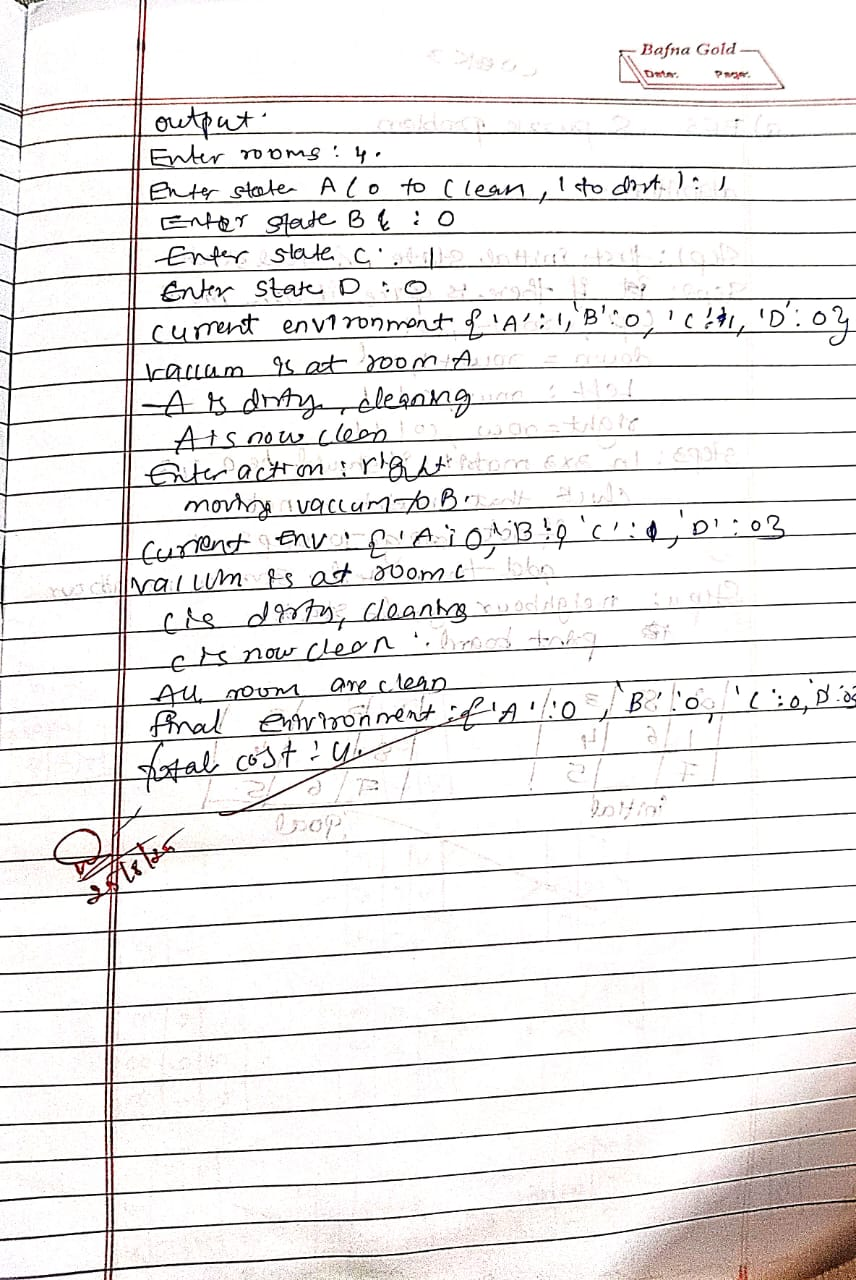 Bafna Gold
Date: Page:
output.
Enter rooms : 4.
Enter state A (0 to clean, 1 to dirt) : 1
Enter state B : 0
Enter state C : 1
Enter state D : 0
current environment {'A': 1, 'B': 0, 'C': 1, 'D': 0}
vaccum is at room A
A is dirty, cleaning
A is now clean
Enter action : right
moving vaccum to B.
Current env : {'A: 0, 'B': 0 'C': 1, 'D' : 0}
vaccum is at room C
C is dirty, cleaning
C is now clean.
All room are clean
final environment : {'A' : 0, 'B' : 0, 'C' : 0, D : 0}
total cost : 4.
25/8/25